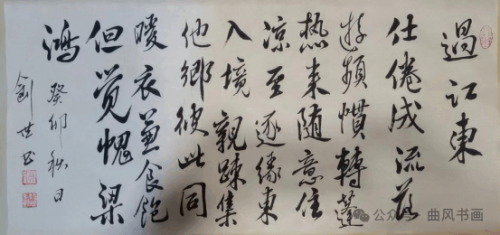 過江東
仕倦成流落
游頻慣轉蓬
熱来随意住
凉至逐緣東
入境親疎集
他鄉彼此同
暖衣兼食飽
但觉愧梁
鴻 癸卯秋日
世书
公众 曲风书画